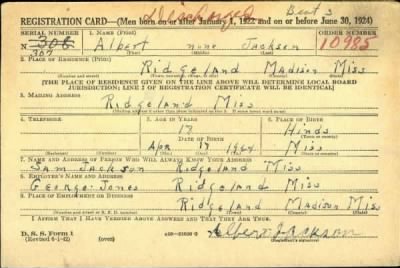 Discharged Bent 3
REGISTRATION CARD—(Men born on or after January 1, 1922 and on or before June 30, 1924)
SERIAL NUMBER 1. NAME (Print) ORDER NUMBER
N 306 Albert none Jackson 10985
307
2. PLACE OF RESIDENCE (Print)
Ridgeland Madison Miss
[THE PLACE OF RESIDENCE GIVEN ON THE LINE ABOVE WILL DETERMINE LOCAL BOARD
JURISDICTION; LINE 2 OF REGISTRATION CERTIFICATE WILL BE IDENTICAL]
3. MAILING ADDRESS
Ridgeland Miss
4. TELEPHONE 5. AGE IN YEARS 6. PLACE OF BIRTH
18 Hinds
DATE OF BIRTH
Apr 17 1924 Miss
7. NAME AND ADDRESS OF PERSON WHO WILL ALWAYS KNOW YOUR ADDRESS
Sam Jackson Ridgeland Miss
8. EMPLOYER'S NAME AND ADDRESS
George Jones Ridgeland Miss
9. PLACE OF EMPLOYMENT OR BUSINESS
Ridgeland Madison Miss
I AFFIRM THAT I HAVE VERIFIED ABOVE ANSWERS AND THAT THEY ARE TRUE.
D. S. S. Form 1
(Revised 6-1-42) (over) Albert Jackson